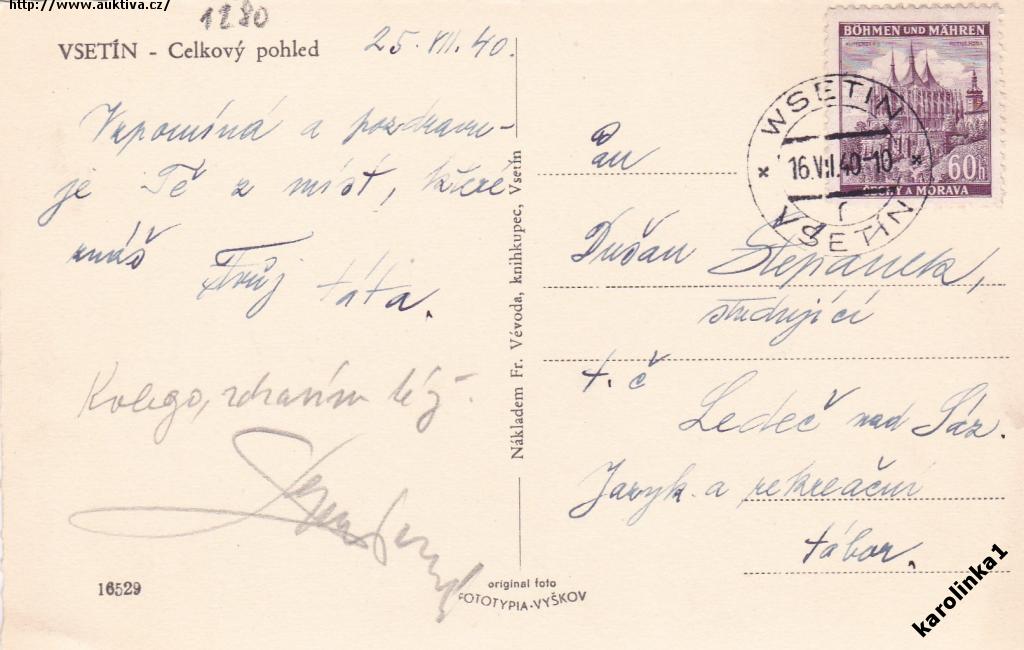 http://www.auktiva.cz/
1280
VSETÍN - Celkový pohled
25. VII. 40.
Vzpomíná a pozdravu-
je Tě z míst, které
znáš
Tvůj táta.
Kolego, zdravím též.
16529
Nákladem Fr. Vévoda, knihkupec, Vsetín
original foto
FOTOTYPIA-VYŠKOV
BÖHMEN UND MÄHREN
60h
ČECHY A MORAVA
WSETIN
16.VII.40-10
VSETÍN
Pan
Dušan Štěpánek,
studující
t. č
Ledeč nad Sáz.
Jazyk. a rekreační
tábor.
karolinka1